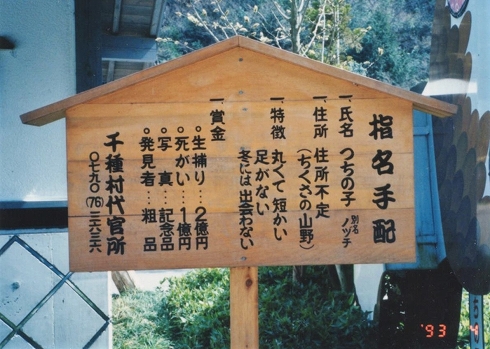 指名手配
一、氏名 つちの子 別名 ノヅチ
一、住所 住所不定
(ちくさの山野)
一、特徴 丸くて短かい
足がない
冬には出会わない
一、賞金
○生捕り…2億円
○死がい…1億円
○写真…記念品
○発見者…粗品
千種村代官所
〇七九〇(76)三六三六
'93 4